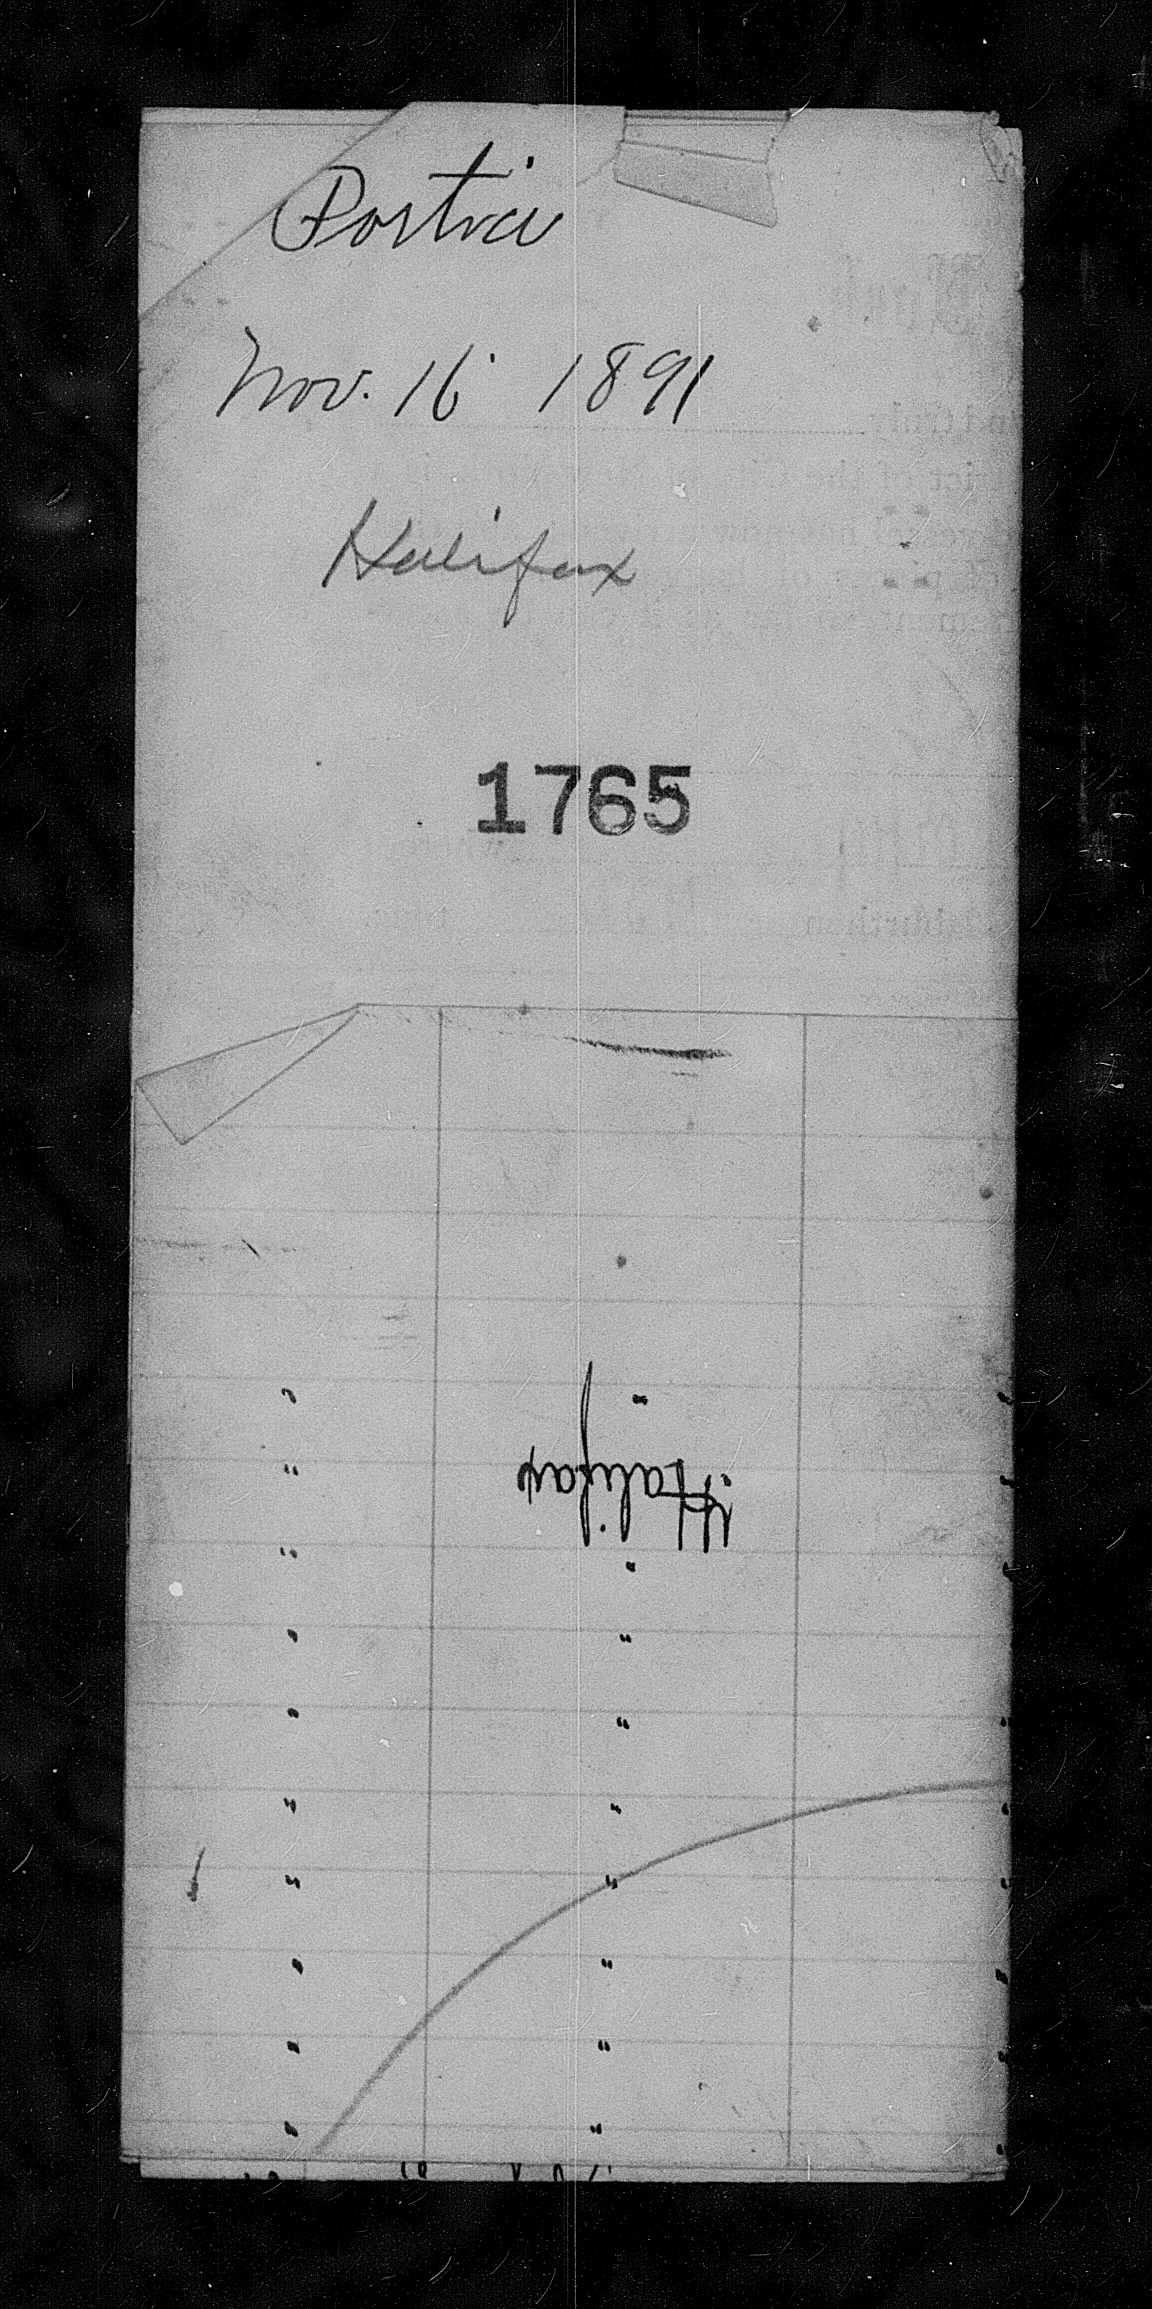 Portia
Nov. 16 1891
Halifax
1765
Halifax